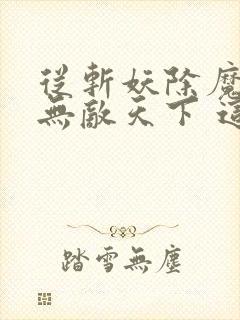 從斬妖除魔
無敵天下 這
踏雪無塵